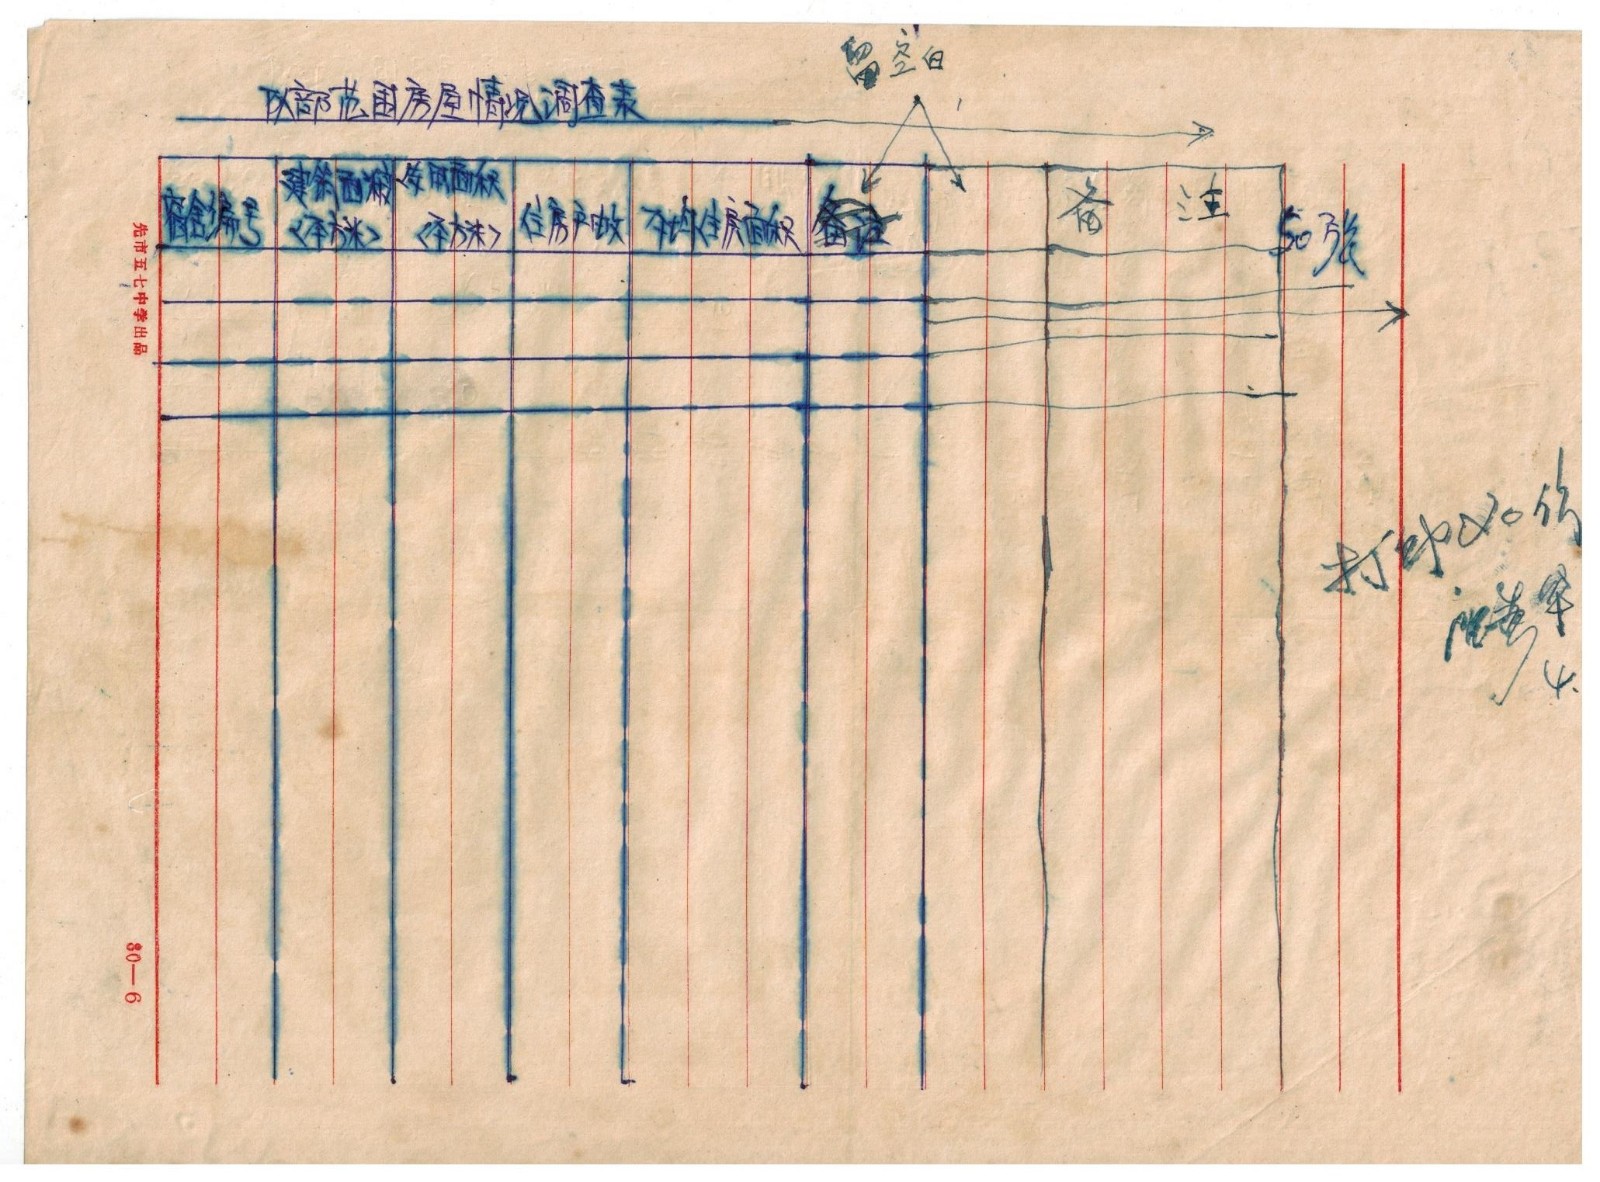 留空白
队部范围房屋情况调查表
宿舍编号
建筑面积
<平方米>
使用面积
<平方米>
住房户数
平均住房面积
备注
备 注
50张
打印 份
先市五七中学出品
80—6